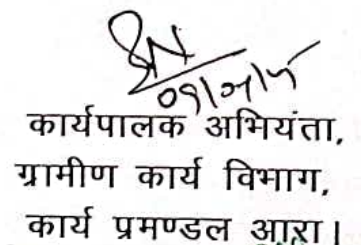 कार्यपालक अभियंता,
ग्रामीण कार्य विभाग,
कार्य प्रमण्डल आरा।